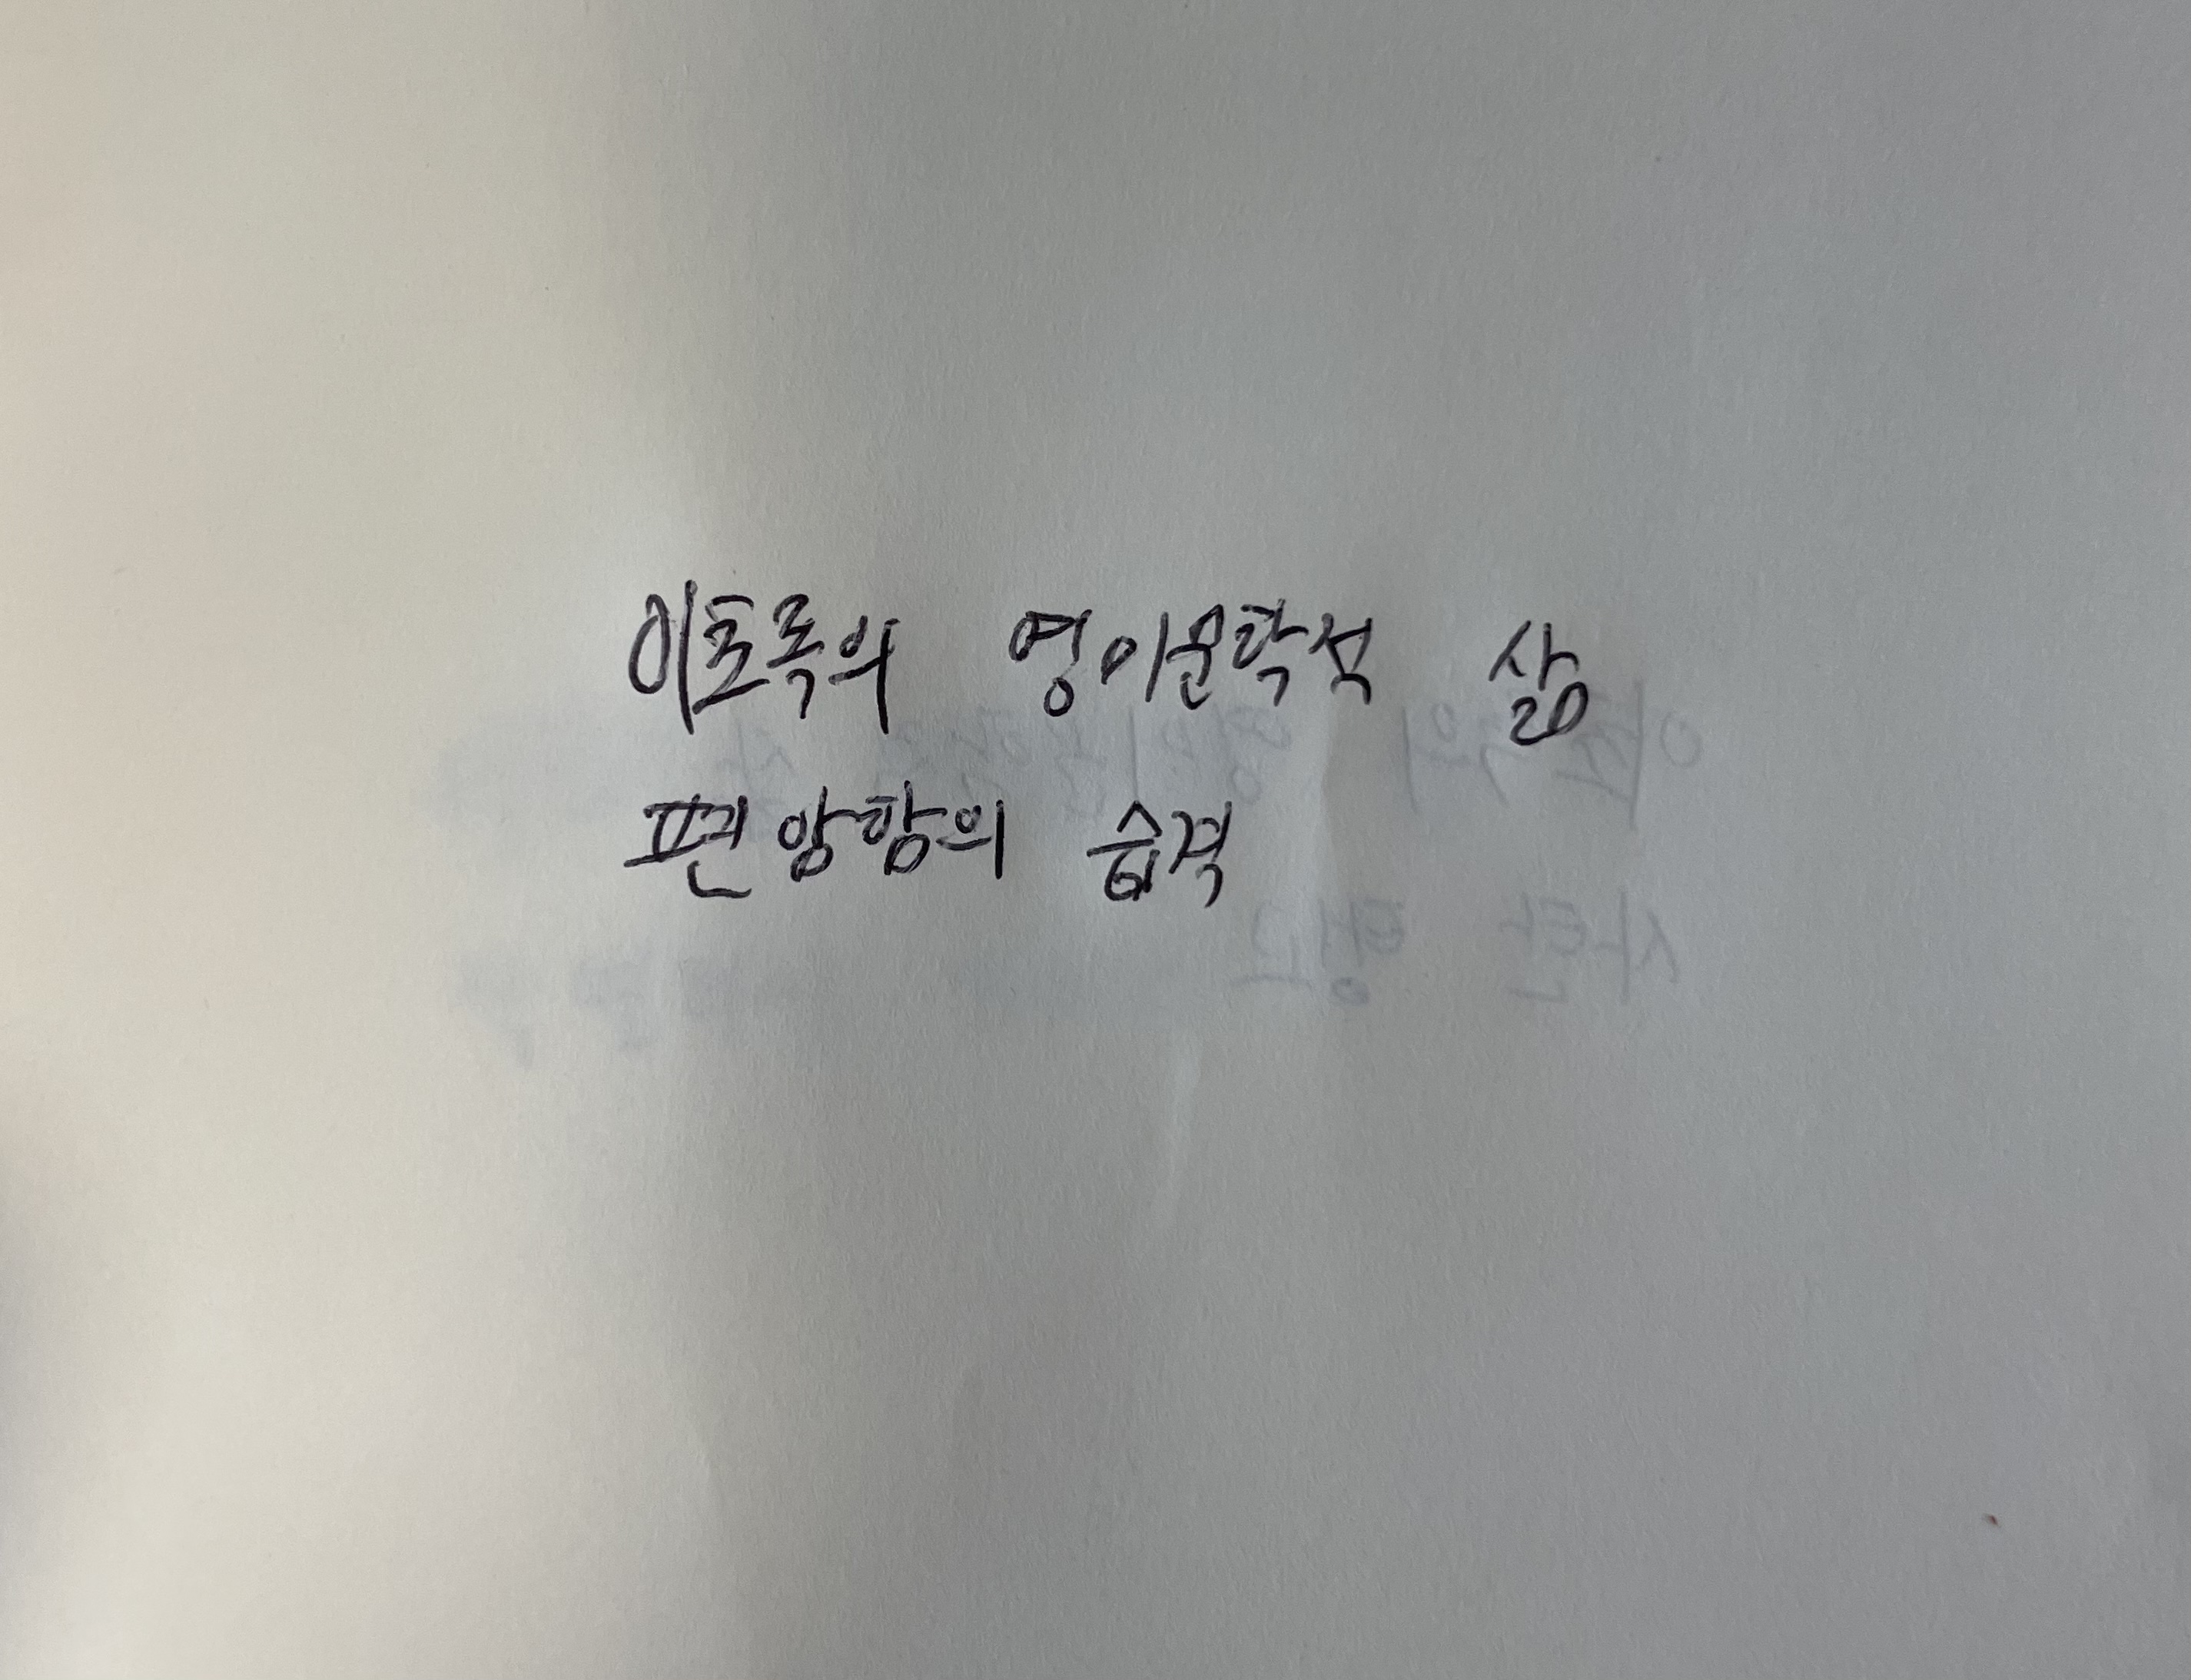 이초록의 영미문학적 삶
편앙함의 습격